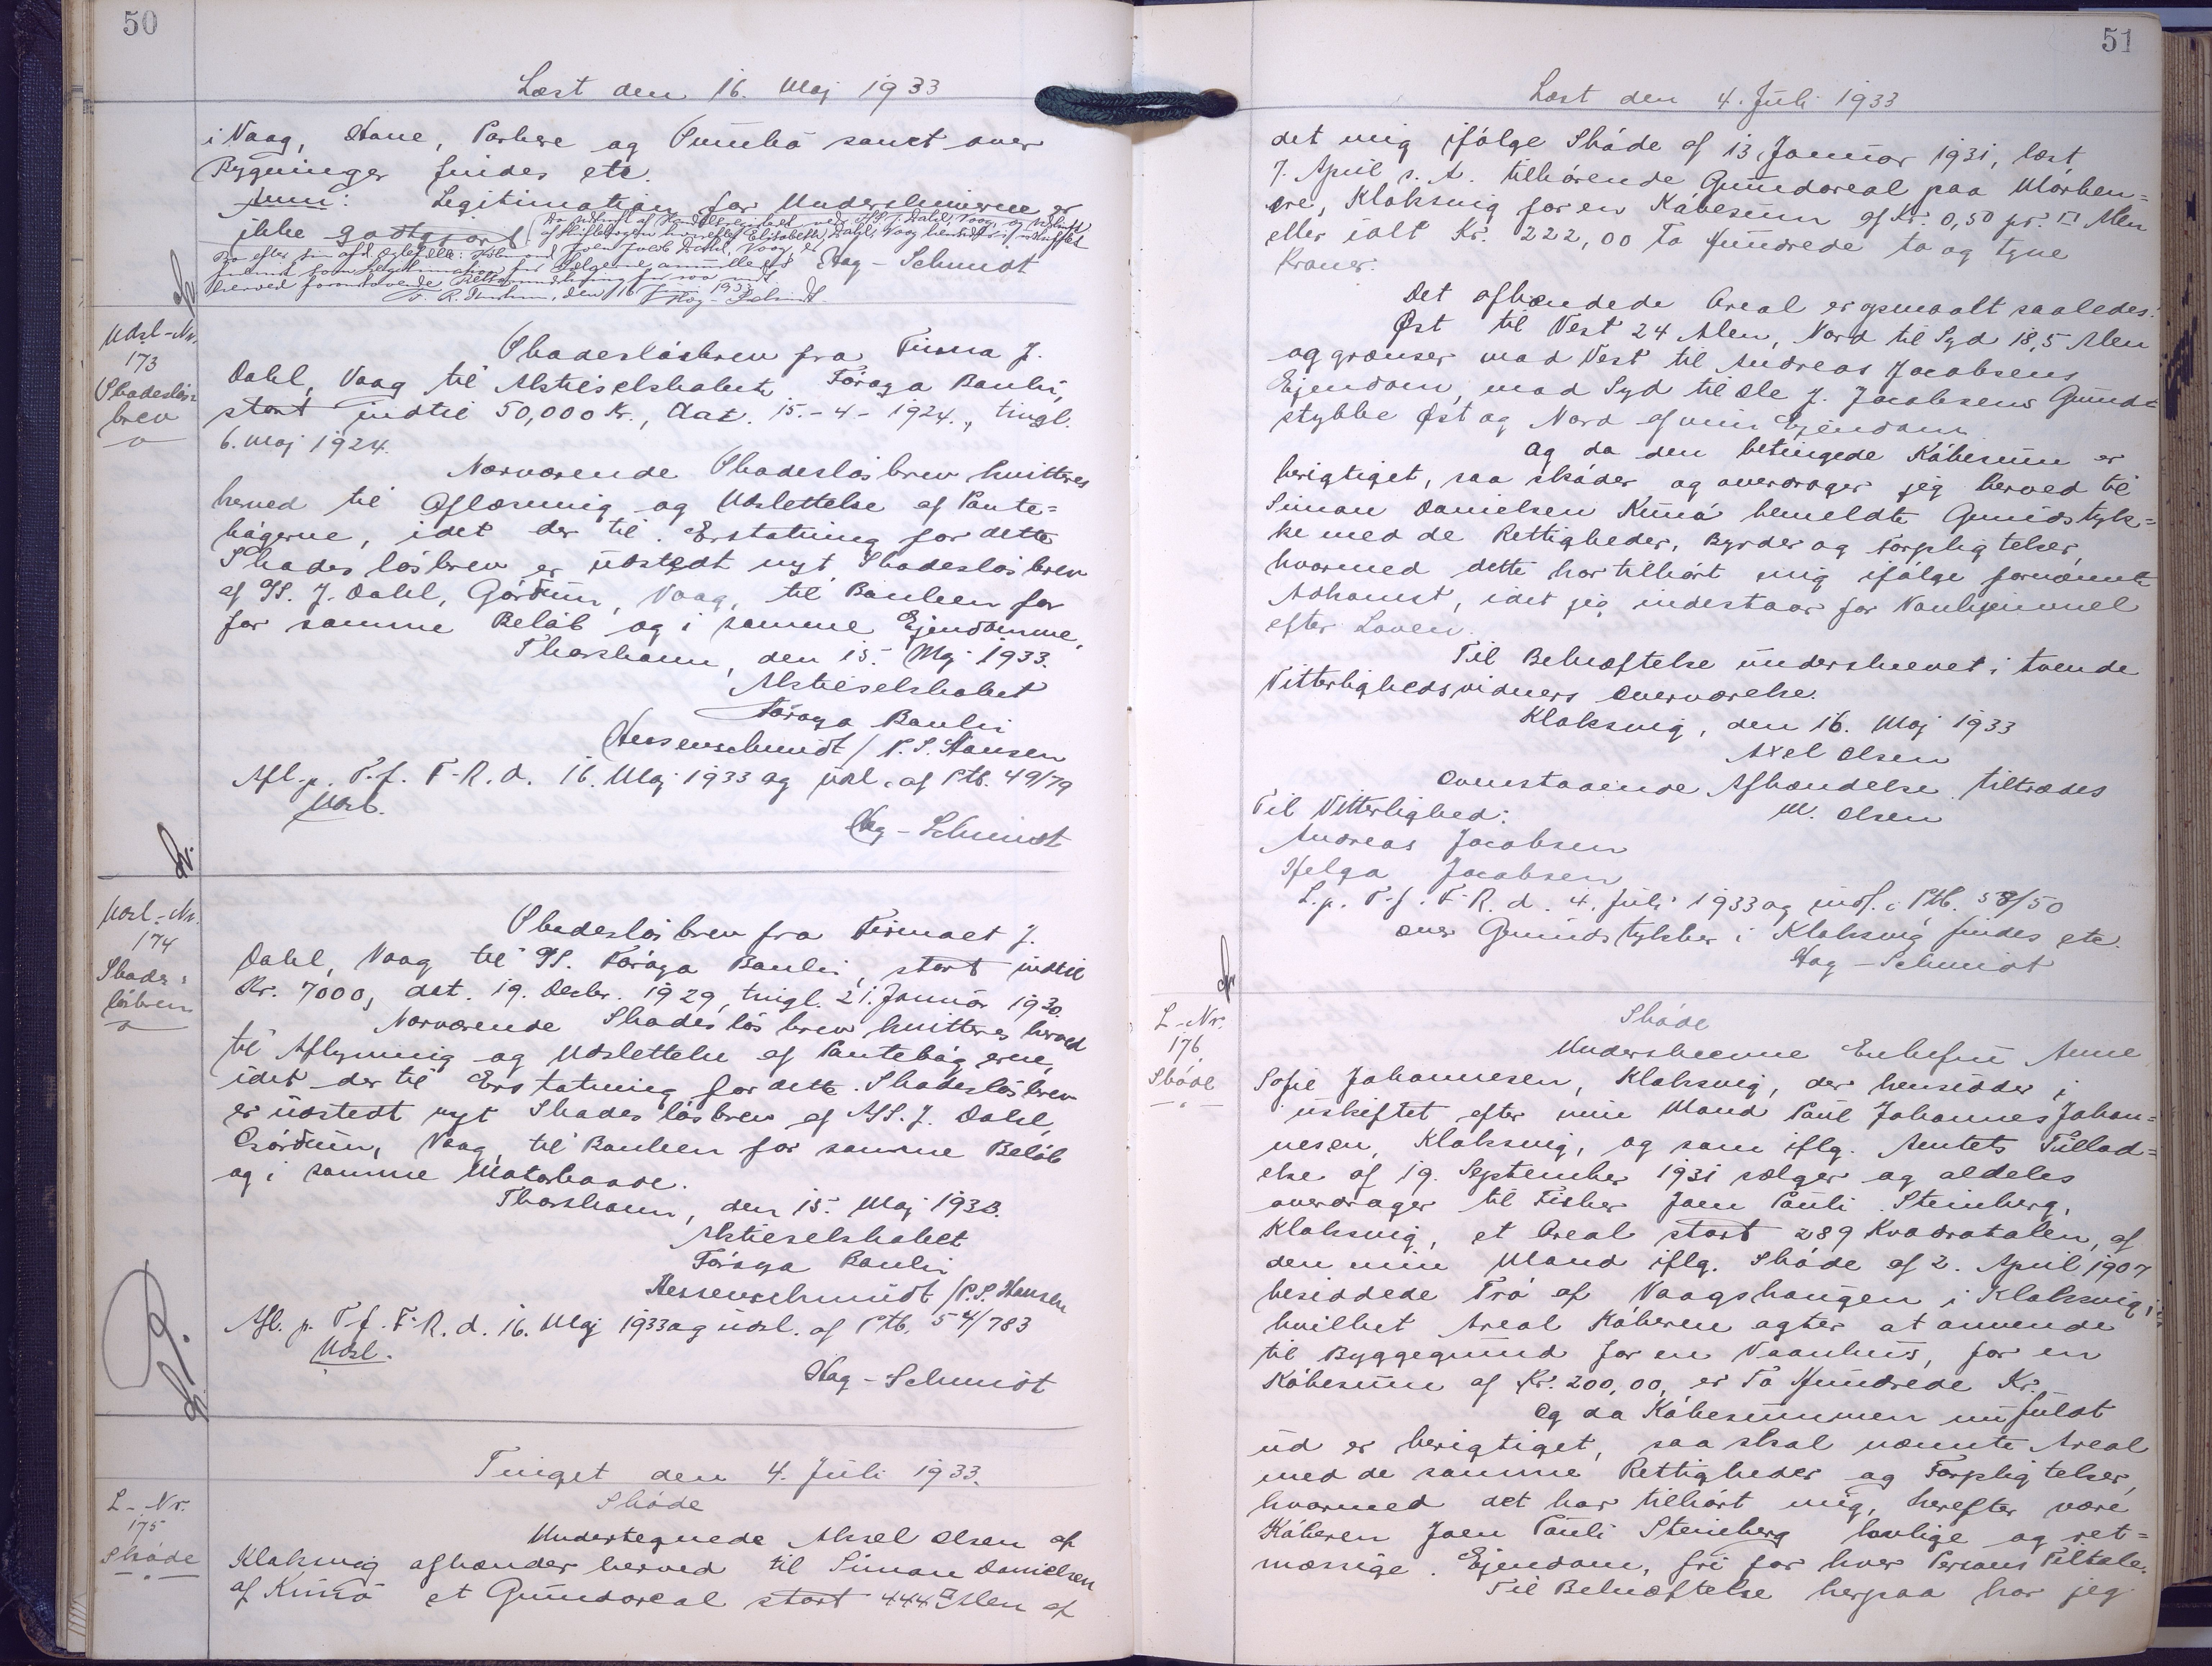 50
Læst den 16. Maj 1933
i Vaag, Hove, Porkere og Sumbø samt over
Bygninger findes etc.
Anm: Legitimation for Underskriverne er
ikke godtgjort.
Hag-Schmidt
Udsl-Nr.
173
Skadesløs=
brev
Skadesløsbrev fra Firma J.
Dahl, Vaag til Aktieselskabet Føroya Banki,
stort indtil 50,000 Kr., dat. 15.-4-1924., tingl.
6. Maj 1924.
Nærværende Skadesløsbrev kvitteres
herved til Aflæsning og Udslettelse af Pante=
bøgerne, idet der til Erstatning for dette
Skadesløsbrev er udstedt nyt Skadesløsbrev
af A/S. J. Dahl, Gørdum, Vaag, til Banken for
for samme Beløb og i samme Ejendomme.
Thorshavn, den 15. Maj 1933.
Aktieselskabet
Føroya Banki
Hessenschmidt / P.S. Hansen
Afl. p. T. f. F. R. d. 16. Maj 1933 og udsl. af Ptb. 49/79
Udsl.
Hag-Schmidt
Udsl-Nr.
174
Skades=
løsbrev
Skadesløsbrev fra Firmaet J.
Dahl, Vaag til A/S. Føroya Banki, stort indtil
Kr. 7000, dat. 19. Decbr. 1929, tingl. 21. Januar 1930.
Nærværende Skadesløsbrev kvitteres herved
til Aflysning og Udslettelse af Pantebøgerne,
idet der til Erstatning for dette Skadesløsbrev
er udstedt nyt Skadesløsbrev af A/S. J. Dahl,
Gørdum, Vaag, til Banken for samme Beløb
og i samme Motorbaade.
Thorshavn, den 15. Maj 1933.
Aktieselskabet
Føroya Banki
Hessenschmidt / P.S. Hansen
Afl. p. T. f. F. R. d. 16. Maj 1933 og udsl. af Ptb. 54/783
Udsl.
Hag-Schmidt
Tinget den 4. Juli 1933.
L-Nr.
175
Skøde
Skøde
Undertegnede Aksel Olsen af
Klaksvig afhænder herved til Simon Danielsen
af Kunø et Grundareal stort 444 □ Alen af
51
Læst den 4. Juli 1933
det mig ifølge Skøde af 13. Januar 1931, læst
7. April s. A. tilhørende Grundareal paa
Klaksvig for en Købesum af Kr. 0,50 pr. □ Alen
eller ialt Kr. 222,00 To Hundrede to og tyve
Kroner.
Det afhændede Areal er opmaalt saaledes:
Øst til Vest 24 Alen, Nord til Syd 18,5 Alen
og grænser mod Vest til Andreas Jacobsens
Ejendom, mod Syd til Ole J. Jacobsens Grund=
stykke Øst og Nord af min Ejendom
Og da den betingede Købesum er
berigtiget, saa skøder og overdrager jeg herved til
Simon Danielsen Kunø bemeldte Grundstyk=
ke med de Rettigheder, Byrder og Forpligtelser,
hvormed dette har tilhørt mig ifølge fornævnte
Adkomst, idet jeg indestaar for Vanhjemmel
efter Loven.
Til Bekræftelse underskrevet i tvende
Vitterlighedsvidners Overværelse.
Klaksvig, den 16. Maj 1933
Axel Olsen
Ovenstaaende Afhændelse tiltrædes
Til Vitterlighed: M. Olsen
Andreas Jacobsen
Helga Jacobsen
L. p. T. f. F. R. d. 4. Juli 1933 og indf. i Ptb. 58/50
over Grundstykker i Klaksvig findes etc.
Hag-Schmidt
L-Nr.
176
Skøde
Skøde
Underskrevne Enkefru Anne
Sofie Johannesen, Klaksvig, der hensidder i
uskiftet efter min Mand Paul Johannes Johan=
nesen, Klaksvig, og som iflg. Amtets Tillad=
else af 19. September 1931 sælger og aldeles
overdrager til Fisker Joen Pauli Steinberg,
Klaksvig, et Areal stort 289 Kvadratalen, af
den min Mand iflg. Skøde af 2. April 1907
besiddede Trø af Vaagshaugen i Klaksvig,
hvilket Areal Køberen agter at anvende
til Byggegrund for en Vaanhus, for en
Købesum af Kr. 200,00, er To Hundrede Kr.
Og da Købesummen nu fuldt
ud er berigtiget, saa skal nævnte Areal
med de samme Rettigheder og Forpligtelser,
hvormed det har tilhørt mig, herefter være
Køberen Joen Pauli Steinberg lovlige og ret=
mæssige Ejendom, fri for hver Persons Tiltale.
Til Bekræftelse herpaa har jeg